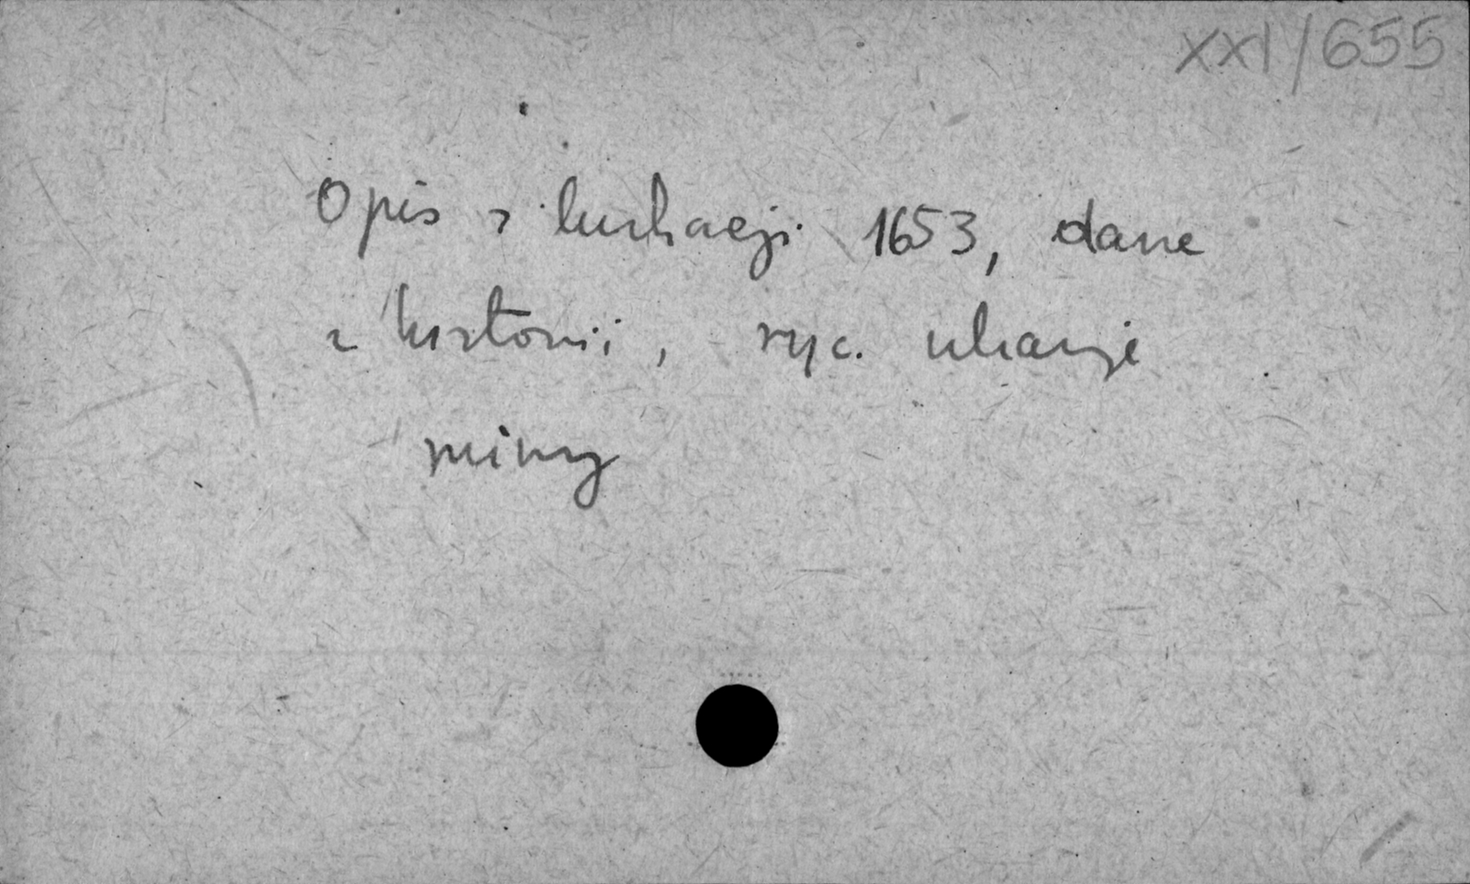 XXI/655
Opis z lustracji 1653, dane
z historii, ryc. ukazuje
ruiny